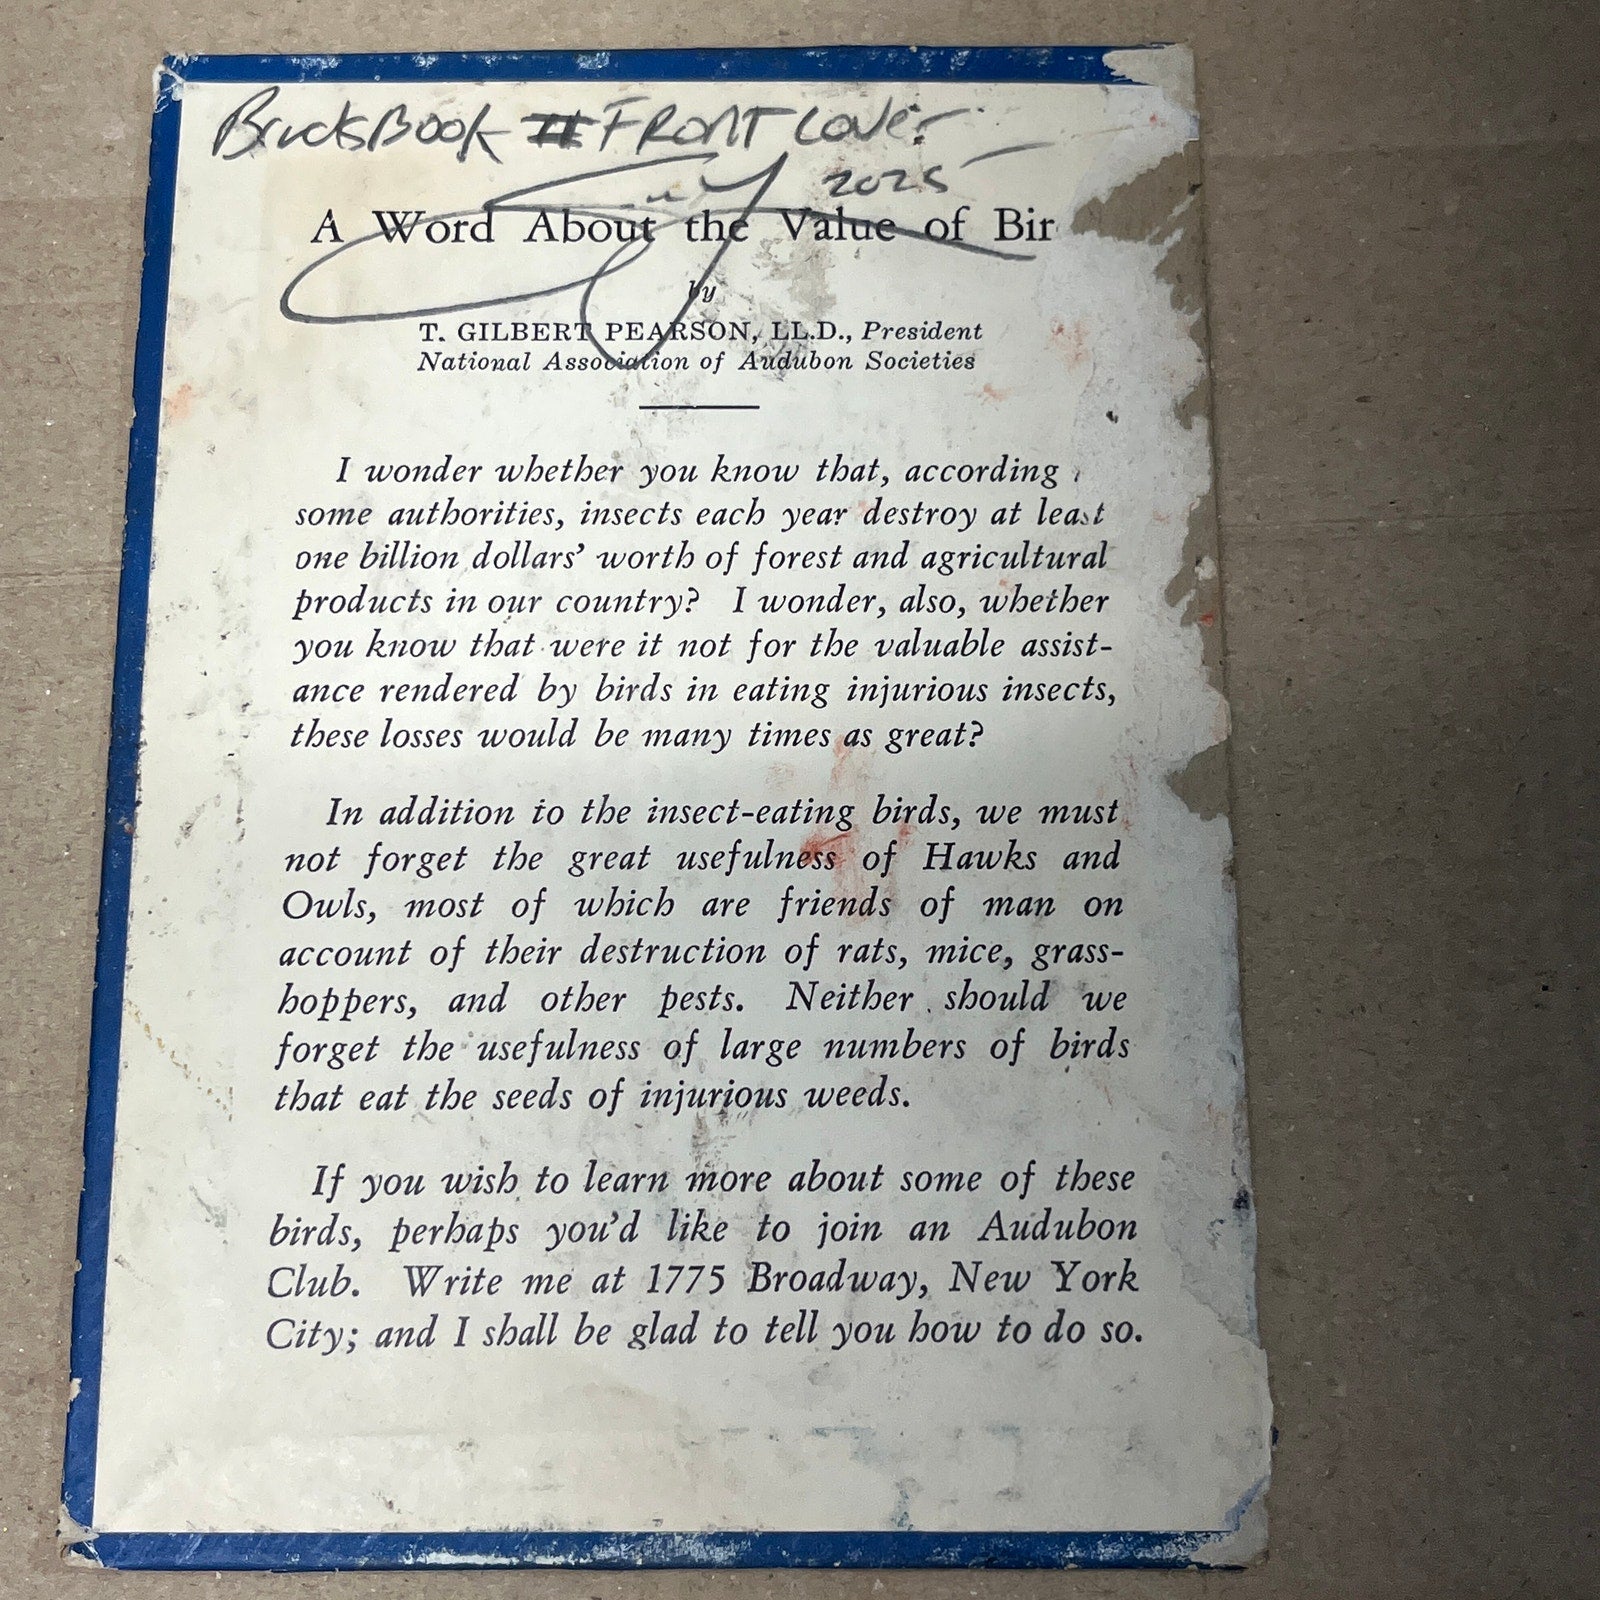 FRONT Cover
2025
A Word About the Value of Bir
by
T. GILBERT PEARSON, LL.D., President
National Association of Audubon Societies
I wonder whether you know that, according
some authorities, insects each year destroy at least
one billion dollars’ worth of forest and agricultural
products in our country? I wonder, also, whether
you know that were it not for the valuable assist-
ance rendered by birds in eating injurious insects,
these losses would be many times as great?
In addition to the insect-eating birds, we must
not forget the great usefulness of Hawks and
Owls, most of which are friends of man on
account of their destruction of rats, mice, grass-
hoppers, and other pests. Neither should we
forget the usefulness of large numbers of birds
that eat the seeds of injurious weeds.
If you wish to learn more about some of these
birds, perhaps you’d like to join an Audubon
Club. Write me at 1775 Broadway, New York
City; and I shall be glad to tell you how to do so.